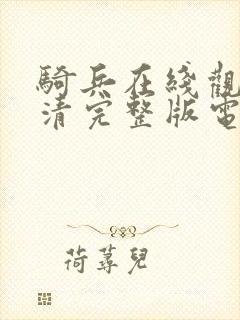 騎兵在綫觀
清完整版電
荷蕁兒